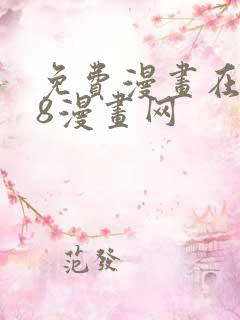 免费漫畫在
8漫畫网
范發